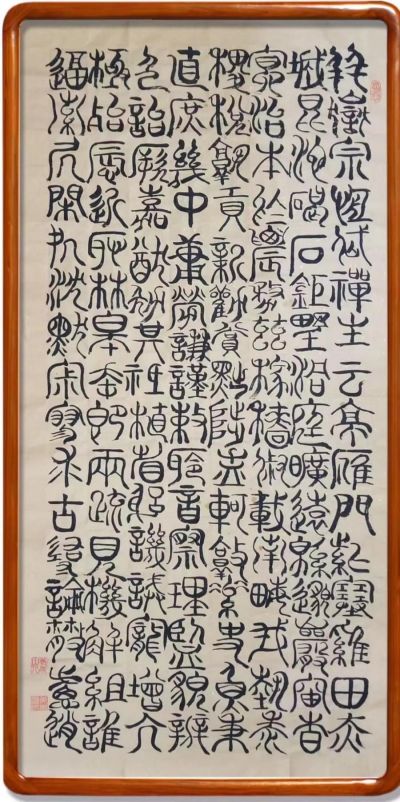 并嶽宗恆岱禪主云亭雁門紫塞雞田赤
城昆池碣石鉅野洞庭曠遠緜邈巖岫杳
冥治本於農務茲稼穡俶載南畝我藝黍
稷稅熟貢新勸賞黜陟孟軻敦素史魚秉
直庶幾中庸勞謙謹敕聆音察理監貌辨
色貽厥嘉猷勉其祗植省躬譏誡寵增亢
極殆辱近恥林皋幸即兩疏見機解組誰
逼索居閑處沈默寂寥求古尋論散慮逍